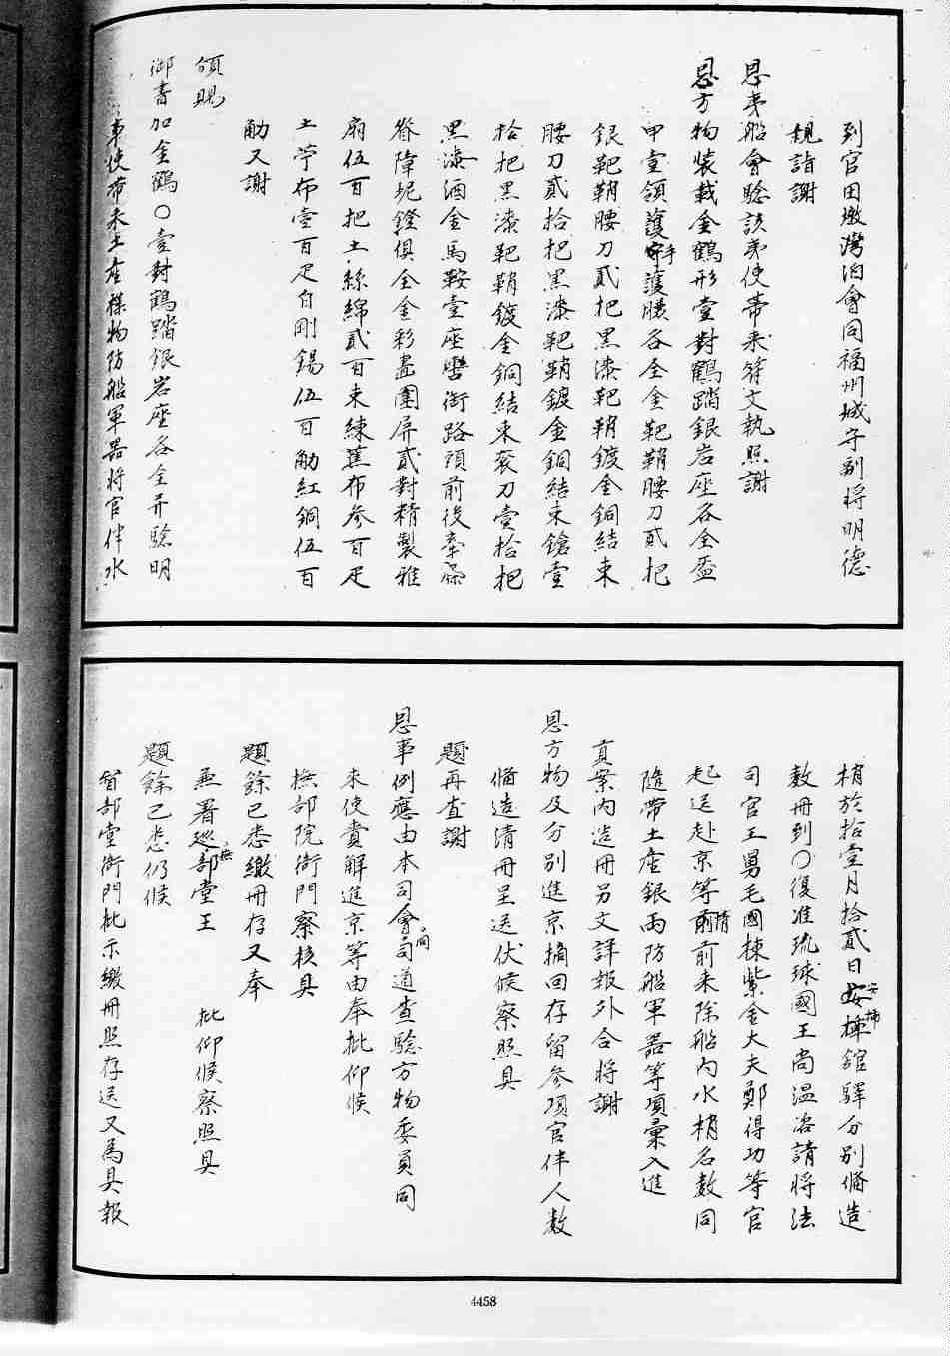 到官田墩灣泊會同福州城守副将明德
親詣謝
恩夷船會驗該夷使帶来符文執照謝
恩方物装載金鶴形壹對鶴踏銀岩座各全盔
甲壹領護守手護膝各全金靶鞘腰刀貳把
銀靶鞘腰刀貳把黑漆靶鞘鍍金銅結束
腰刀貳拾把黑漆靶鞘鍍金銅結束鎗壹
拾把黑漆靶鞘鍍金銅結束衮刀壹拾把
黑漆洒金馬鞍壹座轡銜路頭前後牽
脊障坭鐙俱全金彩畫圍屏貳對精製雅
扇伍百把土絲綿貳百束練蕉布參百疋
土苧布壹百疋白剛錫伍百觔紅銅伍百
觔又謝
頒賜
御書加金鶴〇壹對鶴踏銀岩座各全并驗明
事使帶来土産襍物防船軍器将官伴水
梢於拾壹月拾貳日安安插館驛分別俻造
数冊到〇復准琉球國王尚温咨請将法
司官王舅毛國棟紫金大夫鄭得功等官
起送赴京等情前来除船内水梢名数同
隨帶土産銀両防船軍器等項彙入進
貢案内造冊另文詳報外合将謝
恩方物及分別進京摘回存留參項官伴人数
俻造清冊呈送伏候察照具
題再查謝
恩事例應由本司會同司道查驗方物委員同
来使賚解進京等由奉批仰候
撫部院衙門察核具
題餘已悉繳冊存又奉
兼署巡撫部堂王　批仰候察照具
題餘已悉仍候
督部堂衙門批示繳冊照存送又為具報
4458